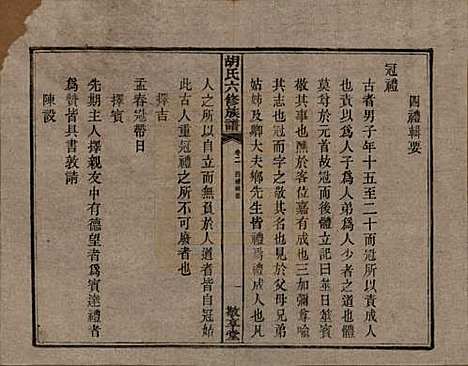 四禮輯要
冠禮
古者男子年十五至二十而冠所以責成人
以責爲人子爲人弟爲人少者之道也體
莫尊於元首故冠而後體立曰筮日筮賓
敬其事也醮於客位嘉有成也三加彌尊喻
其志也冠而字之敬其名也於父母兄弟
姑姊及卿大夫鄉先生皆禮焉禮成人也凡
胡氏六修族譜
卷二
四禮輯要
一
敬享堂
人之所以成人而無負於人道者皆自冠始
此古人重冠禮而不可廢者也
擇吉
孟春冠帶日
擇賓
先期主人擇親友中有德望者爲賓達禮者
爲贊皆具書敦請
陳設